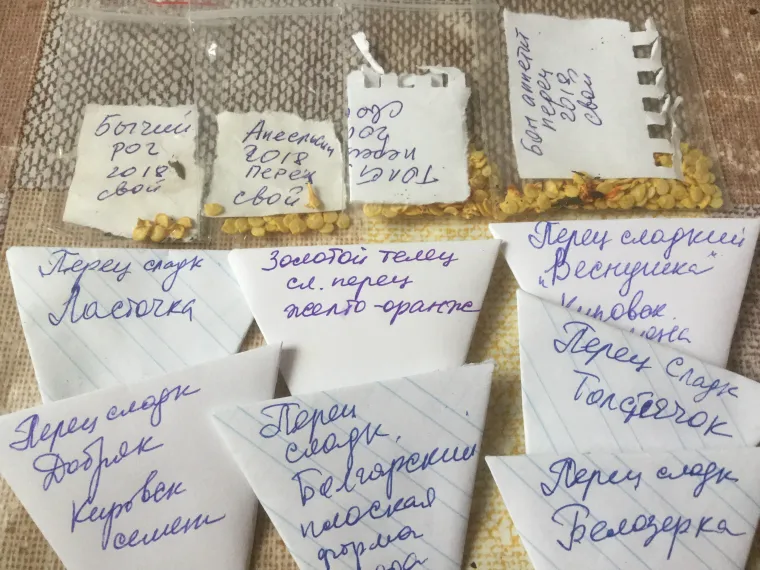 Бычий
рог
2018
свой
Апельсин
2018
перец
свой
Толст
перец
2018
Бон аппетит
перец
2018
свой
Перец сладк
Ласточка
Золотой телец
сл. перец
желто-оранж
Перец сладкий
"Веснушка"
Кировск.
Перец сладк
Толстячок
Перец сладк
Добряк
Кировск
семена
Перец
сладк.
Болгарский
плоская
форма
Перец сладк
Белозерка